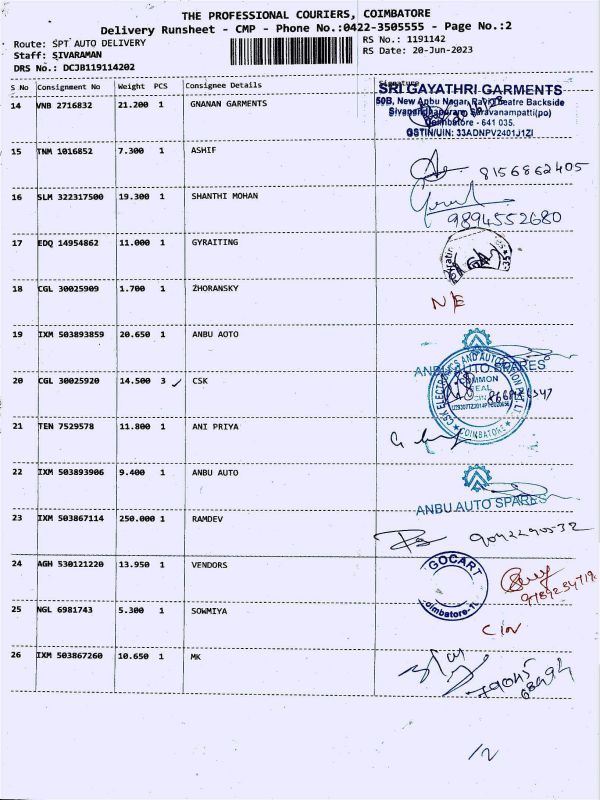 THE PROFESSIONAL COURIERS, COIMBATORE
Delivery Runsheet - CMP - Phone No.:0422-3505555 - Page No.:2
Route: SPT AUTO DELIVERY
RS No.: 1191142
Staff: SIVARAMAN
RS Date: 20-Jun-2023
DRS No.: DCJB119114202
S No Consignment No Weight PCS Consignee Details Signature
14 VNB 2716832 21.200 1 GNANAN GARMENTS
SRI GAYATHRI GARMENTS
50B, New Anbu Nagar, Ravi Theatre Backside
Sivanandhapuram, Saravanampatti(po)
Coimbatore - 641 035.
GSTIN/UIN: 33ADNPV2401J1ZI
15 TNM 1016852 7.300 1 ASHIF
8156862405
16 SLM 322317500 19.300 1 SHANTHI MOHAN
9894552680
17 EDQ 14954862 11.000 1 GYRAITING
18 CGL 30025909 1.700 1 ZHORANSKY
N/E
19 IXM 503893859 20.650 1 ANBU AOTO
ANBU AUTO SPARES
20 CGL 30025920 14.500 3 CSK
COMMON
SEAL
COIMBATORE
21 TEN 7529578 11.800 1 ANI PRIYA
22 IXM 503893906 9.400 1 ANBU AUTO
ANBU AUTO SPARES
23 IXM 503867114 250.000 1 RAMDEV
9042290532
24 AGH 530121220 13.950 1 VENDORS
GOCART
25 NGL 6981743 5.300 1 SOWMIYA
26 IXM 503867260 10.650 1 MK